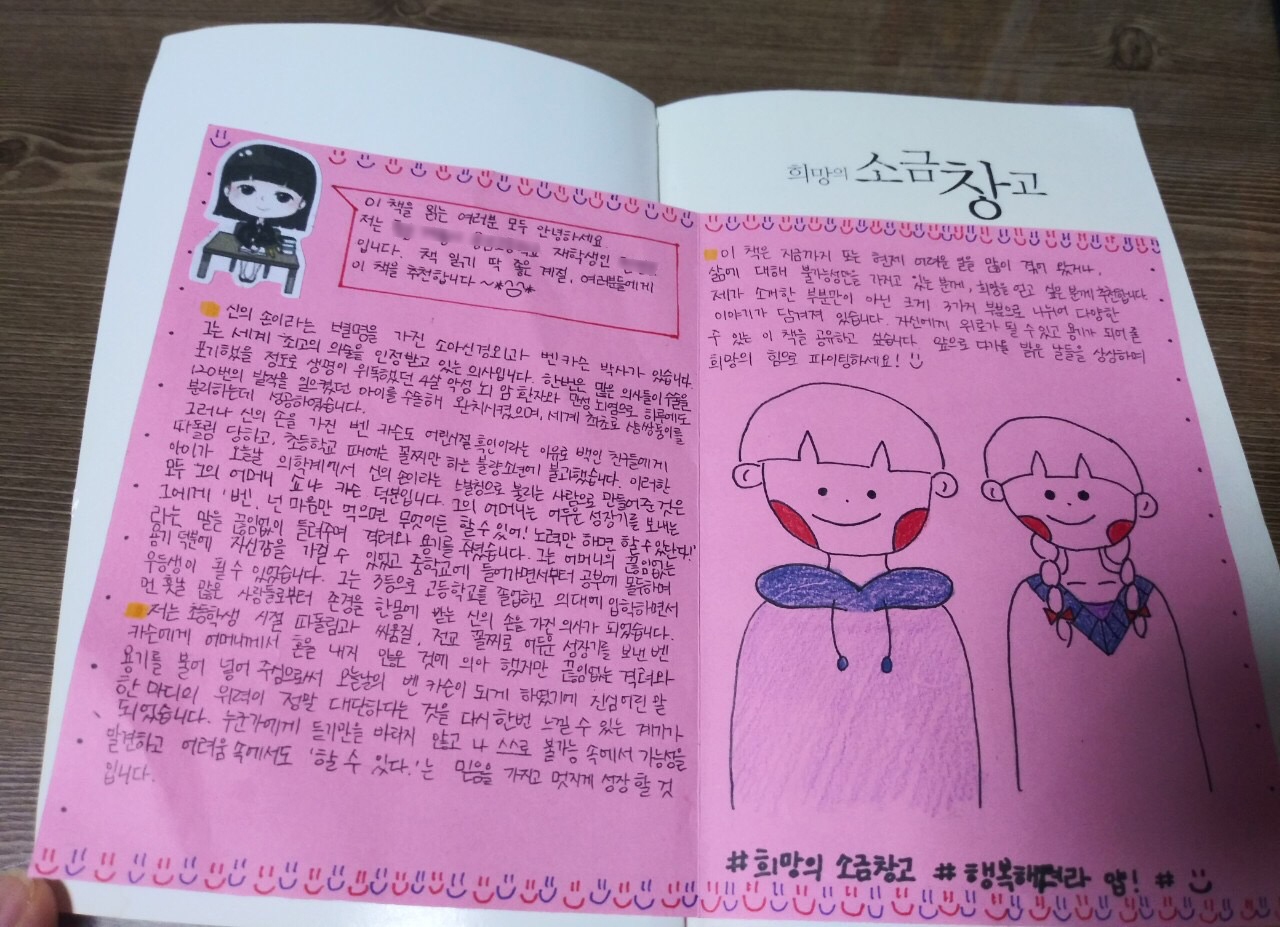 이 책을 읽는 여러분 모두 안녕하세요.
저는 재학생인
입니다. 책 읽기 딱 좋은 계절, 여러분들에게
이 책을 추천합니다 ~*^^*
신의 손이라는 별명을 가진 소아신경외과 벤 카슨 박사가 있습니다.
그는 세계 최고의 의술을 인정받고 있는 의사입니다. 한번은 많은 의사들이 수술을
포기했을 정도로 생명이 위독했던 4살 악성 뇌 암 환자와 만성 뇌염으로 하루에도
120번의 발작을 일으켰던 아이를 수술해 완치시켰으며, 세계 최초로 샴쌍둥이를
분리하는데 성공하였습니다.
그러나 신의 손을 가진 벤 카슨도 어린시절 흑인이라는 이유로 백인 친구들에게
따돌림 당하고, 초등학교 때에는 꼴찌만 하는 불량소년에 불과했습니다. 이러한
아이가 오늘날 의학계에서 신의 손이라는 별칭으로 불리는 사람으로 만들어준 것은
모두 그의 어머니 쇼냐 카슨 덕분입니다. 그의 어머니는 어두운 성장기를 보내는
그에게 '벤, 넌 마음만 먹으면 무엇이든 할 수 있어! 노력만 하면 할 수 있단다!'
라는 말을 끊임없이 들려주며 격려와 용기를 주셨습니다. 그는 어머니의 끊임없는
용기 덕분에 자신감을 가질 수 있었고 중학교에 들어가면서부터 공부에 몰두하며
우등생이 될 수 있었습니다. 그는 3등으로 고등학교를 졸업하고 의대에 입학하면서
먼 훗날 많은 사람들로부터 존경을 한몸에 받는 신의 손을 가진 의사가 되었습니다.
저는 초등학생 시절 따돌림과 싸움질, 전교 꼴찌로 어두운 성장기를 보낸 벤
카슨에게 어머니께서 혼을 내지 않은 것에 의아 했지만 끊임없는 격려와
용기를 불어 넣어 주심으로써 오늘날의 벤 카슨이 되게 하였기에 진심어린 말
한 마디의 위력이 정말 대단하다는 것을 다시 한번 느낄 수 있는 계기가
되었습니다. 누군가에게 듣기만을 바라지 않고 나 스스로 불가능 속에서 가능성을
발견하고 어려움 속에서도 '할 수 있다.'는 믿음을 가지고 멋지게 성장 할 것
입니다.
희망의 소금창고
이 책은 지금까지 또는 현재 어려운 일을 많이 겪어 왔거나,
삶에 대해 불가능성만을 가지고 있는 분께, 희망을 얻고 싶은 분께 추천합니다.
제가 소개한 부분만이 아닌 크게 3가지 부분으로 나뉘어 다양한
이야기가 담겨져 있습니다. 자신에게 위로가 될 수 있고 용기가 되어 줄
수 있는 이 책을 공유하고 싶습니다. 앞으로 다가올 밝은 날들을 상상하며
희망의 힘으로 파이팅하세요!
#희망의 소금창고 #행복해져라 얍! #